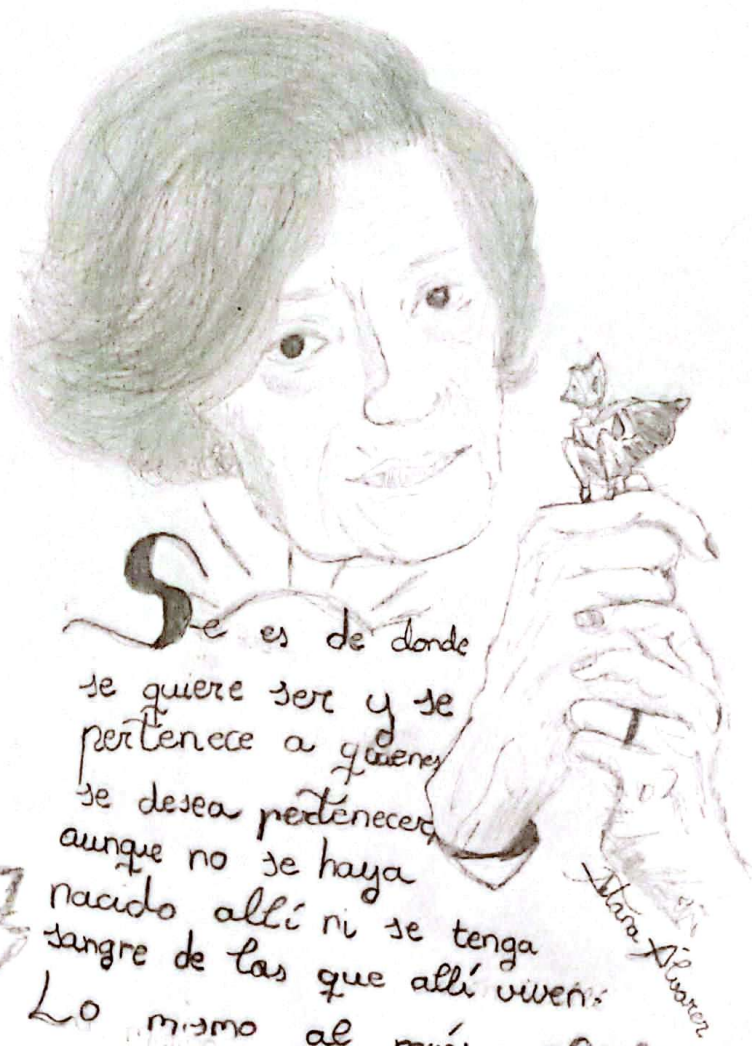 Se es de donde
se quiere ser y se
pertenece a quienes
se desea pertenecer,
aunque no se haya
nacido allí ni se tenga
sangre de los que allí viven.
Lo mismo al
Álvarez